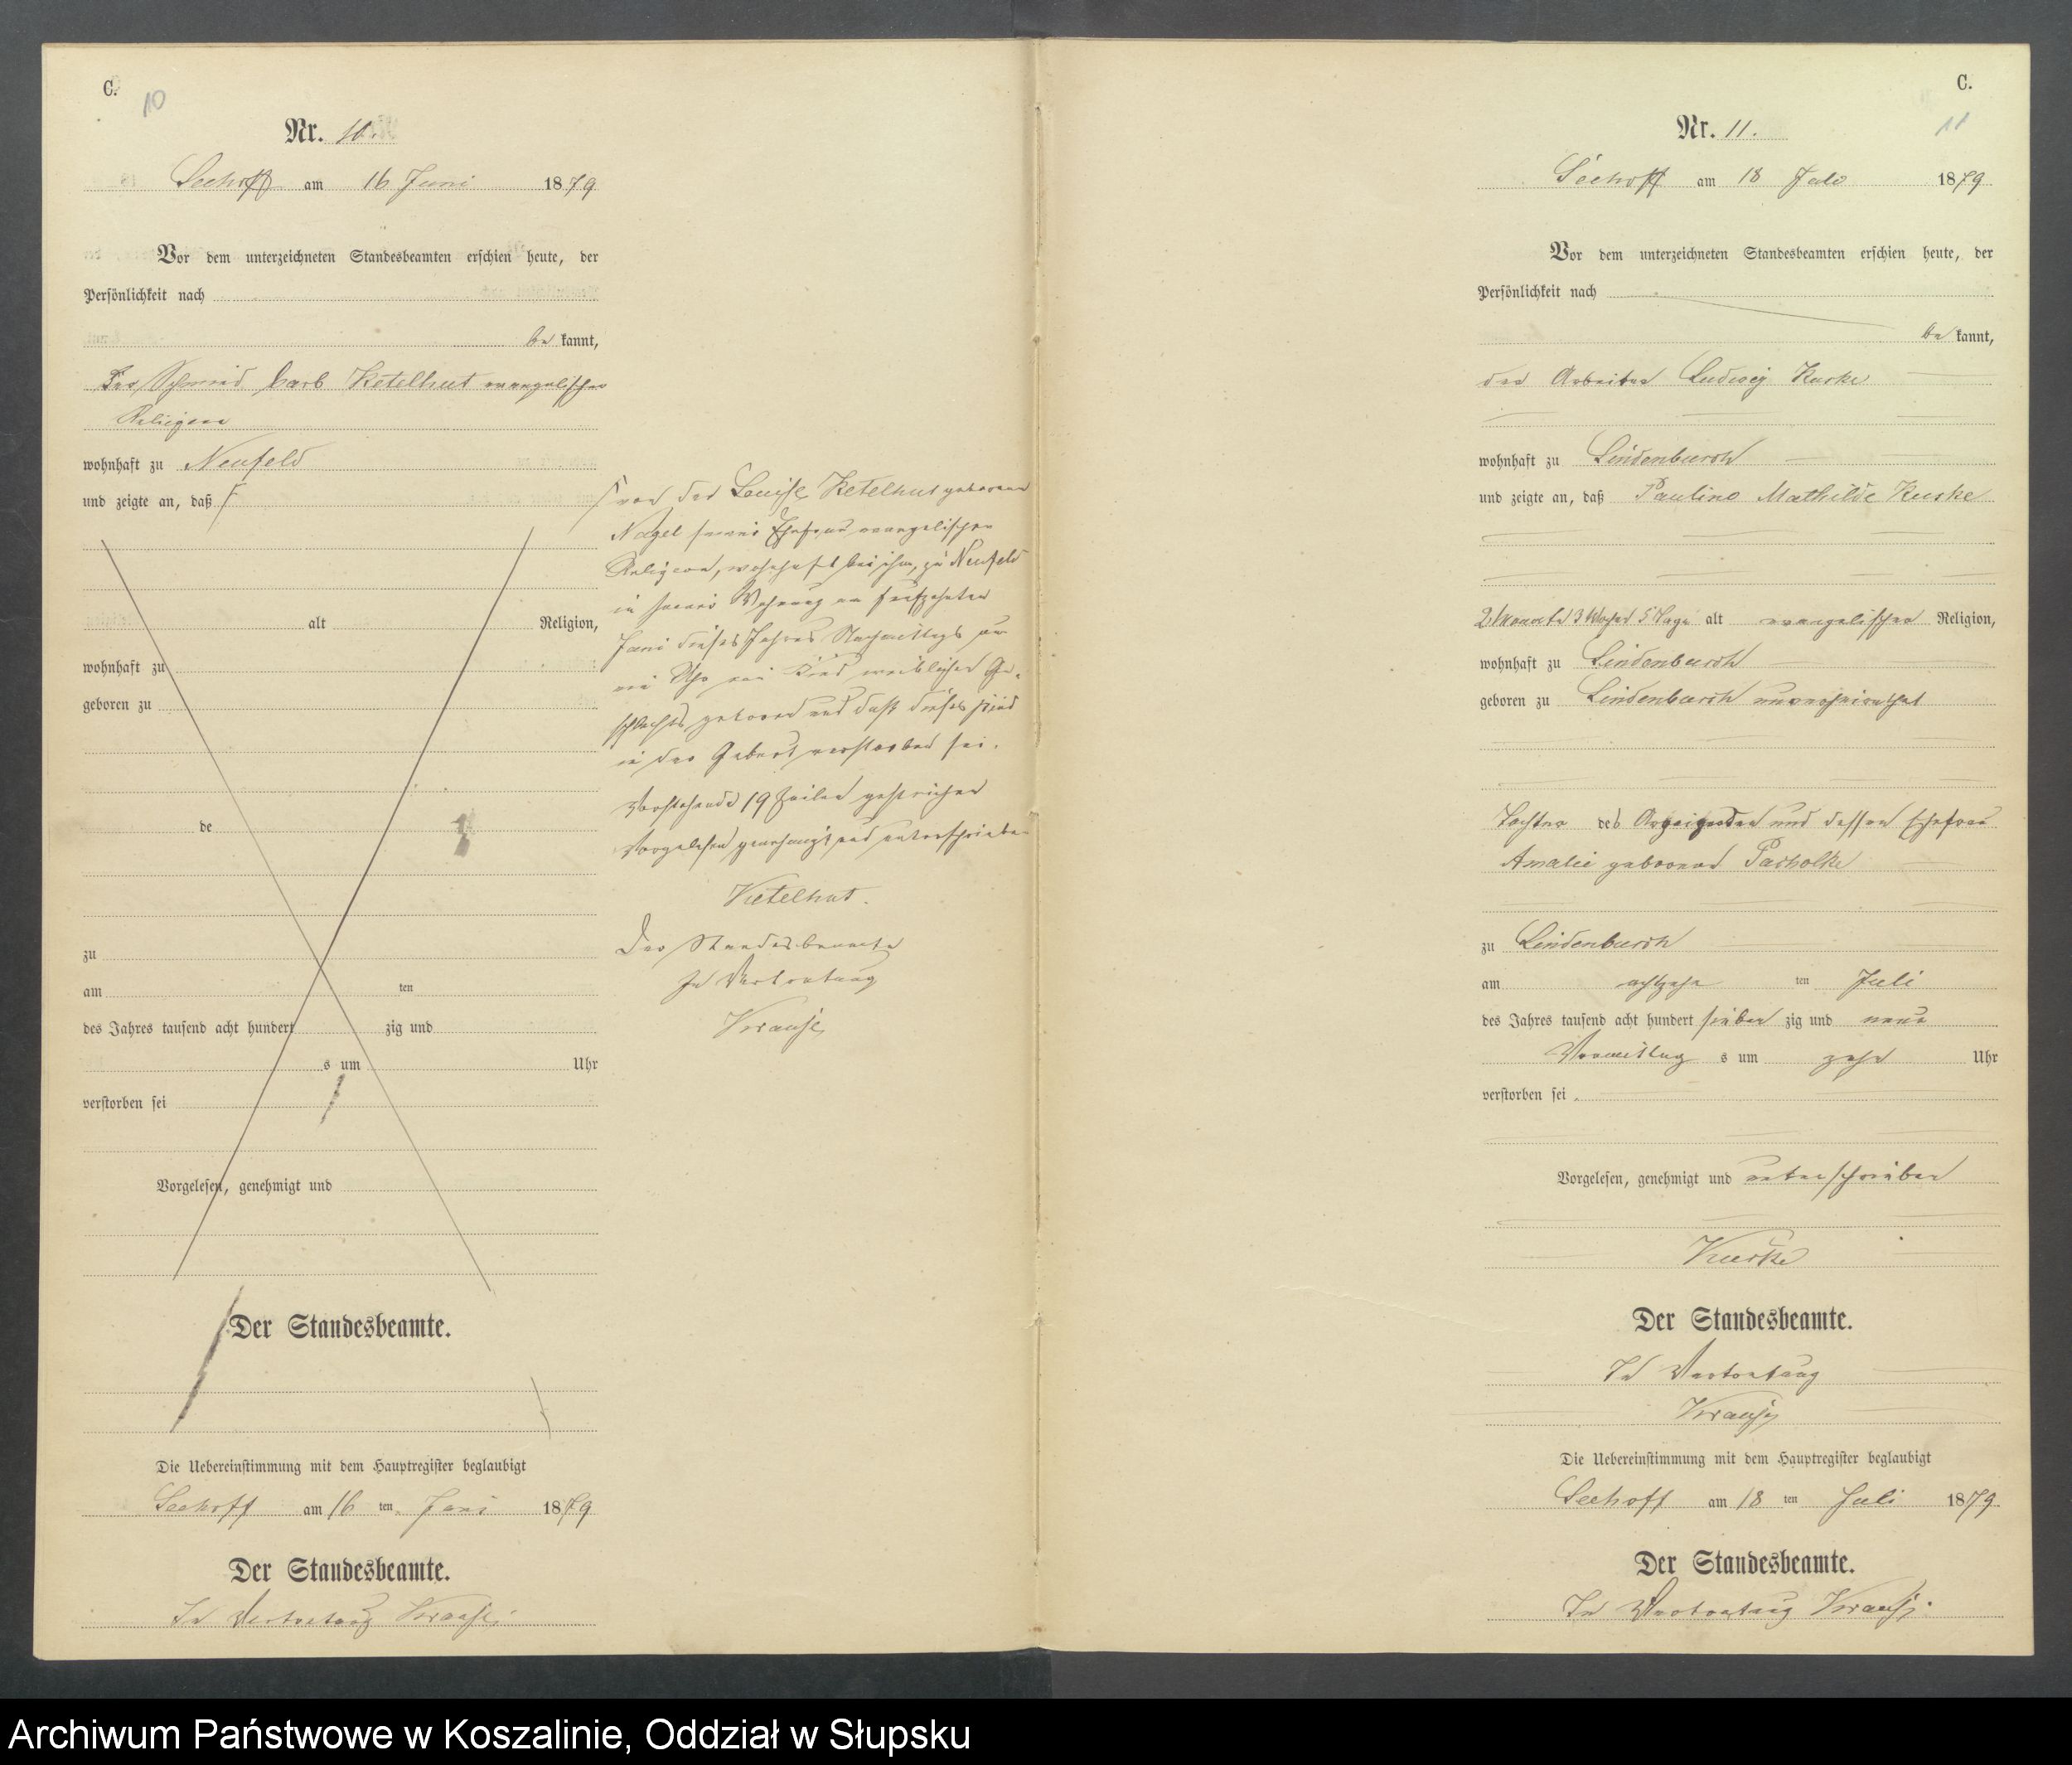 C.
10
Nr. 10.
Seehoff am 16 Juni 1879
Vor dem unterzeichneten Standesbeamten erschien heute, der
Persönlichkeit nach
be kannt,
Der Schmied Carl Ketelhut evangelischer
Religion
wohnhaft zu Neufeld
und zeigte an, daß
alt Religion,
wohnhaft zu
geboren zu
de
zu
am ten
des Jahres tausend acht hundert zig und
s um Uhr
verstorben sei
Vorgelesen, genehmigt und
Der Standesbeamte.
Die Uebereinstimmung mit dem Hauptregister beglaubigt
Seehoff am 16 ten Juni 1879
Der Standesbeamte.
In Vertretung Krause.
von der Louise Ketelhut geborene
Nagel seine Ehefrau evangelischer
Religion, wohnhaft bei ihm, zu Neufeld
in seiner Wohnung am funfzehnten
Juni dieses Jahres Nachmittags um
ein Uhr ein Kind weiblichen Ge-
schlechts geboren und daß dieses Kind
in der Geburt verstorben sei.
Vorstehende 19 Zeilen gestrichen
Vorgelesen genehmigt und unterschrieben
Ketelhut.
Der Standesbeamte
In Vertretung
Krause
C.
11
Nr. 11.
Seehoff am 18 Juli 1879
Vor dem unterzeichneten Standesbeamten erschien heute, der
Persönlichkeit nach
be kannt,
der Arbeiter Ludwig Kuske
wohnhaft zu Lindenbusch
und zeigte an, daß Pauline Mathilde Kuske
2 Monate 3 Wochen 5 Tage alt evangelischer Religion,
wohnhaft zu Lindenbusch
geboren zu Lindenbusch unverheirathet
Tochter des Anzeigenden und dessen Ehefrau
Amalie geborene Pacholke
zu Lindenbusch
am achtzehn ten Juli
des Jahres tausend acht hundert sieben zig und neun
Vormittag s um zehn Uhr
verstorben sei.
Vorgelesen, genehmigt und unterschrieben
Kuske
Der Standesbeamte.
In Vertretung
Krause
Die Uebereinstimmung mit dem Hauptregister beglaubigt
Seehoff am 18 ten Juli 1879
Der Standesbeamte.
In Vertretung Krause.
Archiwum Państwowe w Koszalinie, Oddział w Słupsku